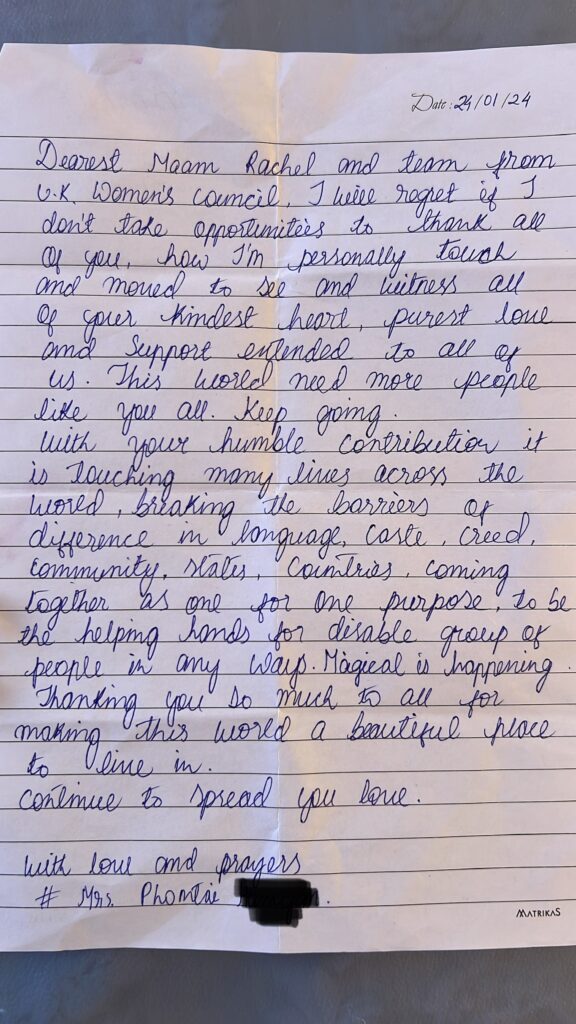 Date: 24/01/24
Dearest Maam Rachel and team from
U.K. Women's council, I will regret if I
don't take opportunities to thank all
Of you, how I'm personally touch
and moved to see and witness all
Of your kindest heart, purest love
and support extended to all of
us. This world need more people
like you all. Keep going.
With your humble contribution it
is touching many lives across the
world, breaking the barriers of
difference in language, caste, creed,
community, states, countries, coming
together as one for one purpose, to be
the helping hands for disable group of
people in any ways. Magical is happening.
Thanking you so much to all for
making this world a beautiful place
to live in.
Continue to spread you love.
With love and prayers
# Mrs. Phomtai
MATRIKAS